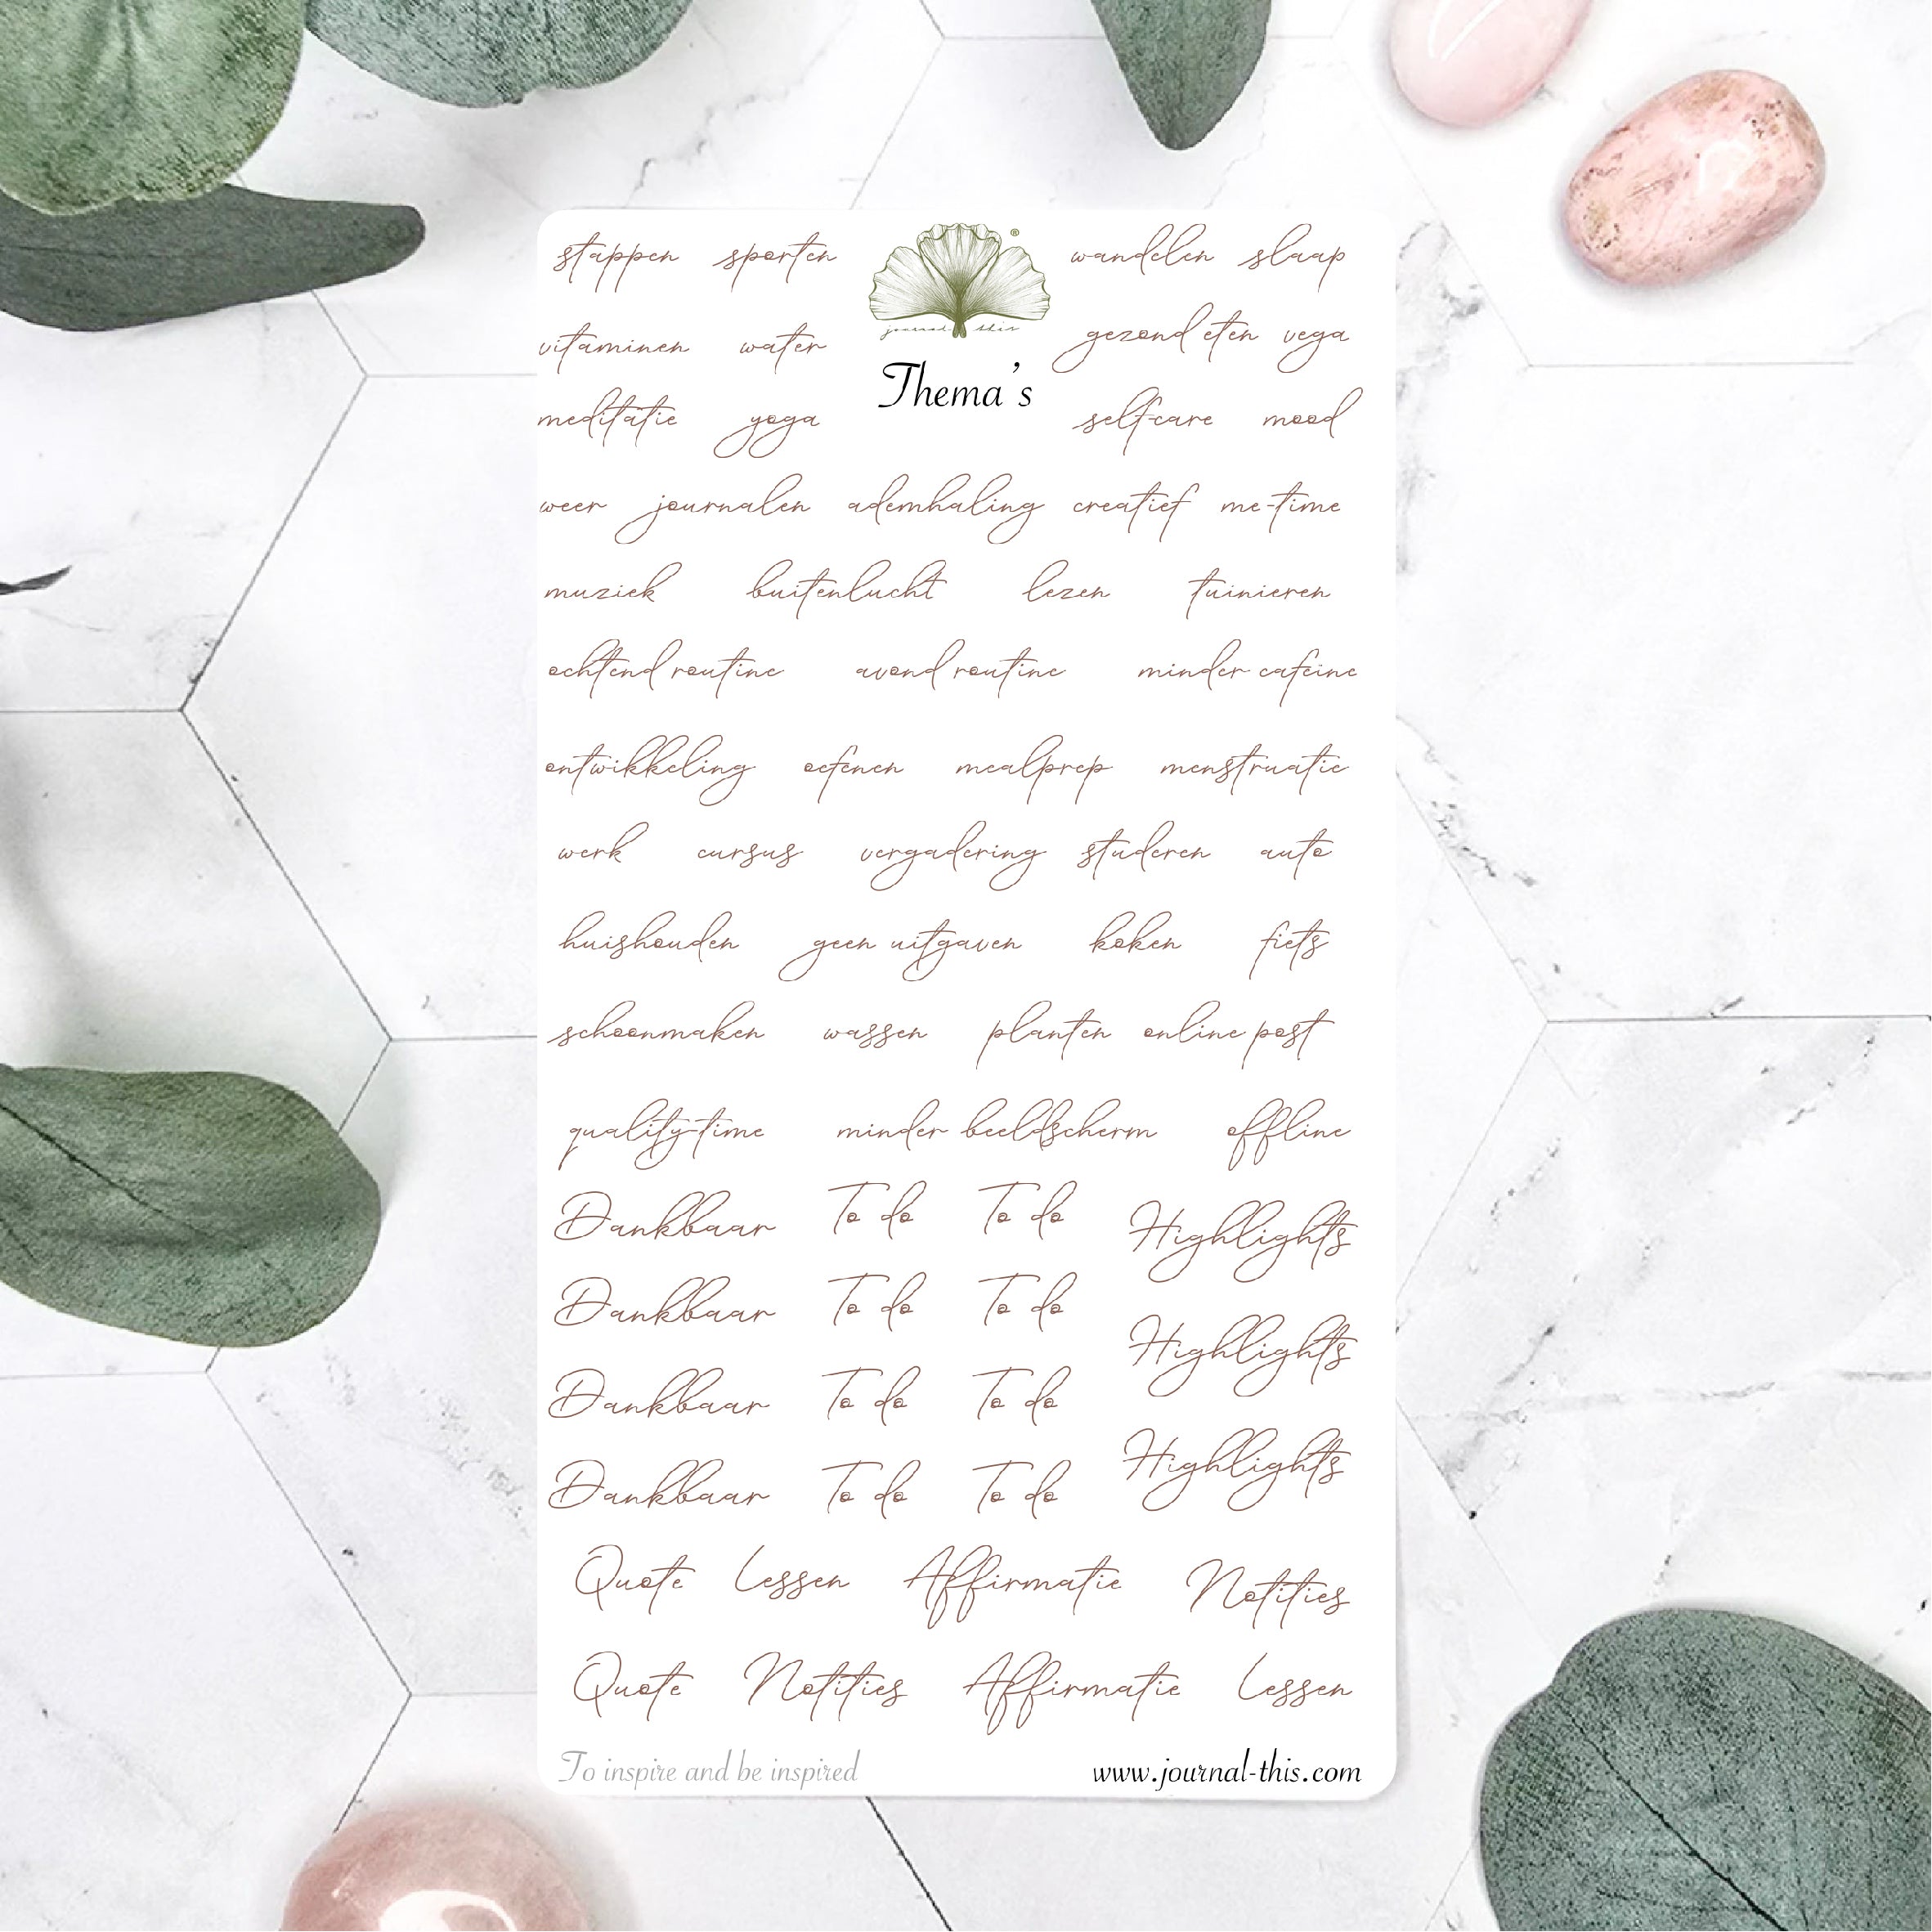 stappen sporten ® wandelen slaap
journal this
vitaminen water gezond eten vega
Thema's
meditatie yoga self-care mood
weer journalen ademhaling creatief me-time
muziek buitenlucht lezen tuinieren
ochtend routine avond routine minder cafeine
ontwikkeling oefenen mealprep menstruatie
werk cursus vergadering studeren auto
huishouden geen uitgaven koken fiets
schoonmaken wassen planten online post
quality-time minder beeldscherm offline
Dankbaar To do To do Highlights
Dankbaar To do To do Highlights
Dankbaar To do To do
Dankbaar To do To do Highlights
Quote Lessen Affirmatie Notities
Quote Notities Affirmatie Lessen
To inspire and be inspired www.journal-this.com